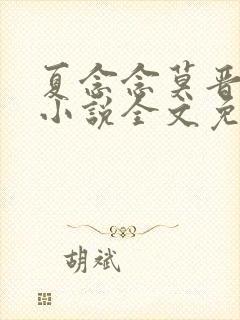 夏念念莫晋
小说全文免
胡斌